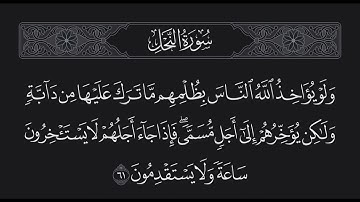 سُورَةُ النَّحْلِ
وَلَوْ يُؤَاخِذُ ٱللَّهُ ٱلنَّاسَ بِظُلْمِهِم مَّا تَرَكَ عَلَيْهَا مِن دَآبَّةٍ
وَلَٰكِن يُؤَخِّرُهُمْ إِلَىٰٓ أَجَلٍ مُّسَمًّىۖ فَإِذَا جَآءَ أَجَلُهُمْ لَا يَسْتَـْٔخِرُونَ
سَاعَةً وَلَا يَسْتَقْدِمُونَ ٦١